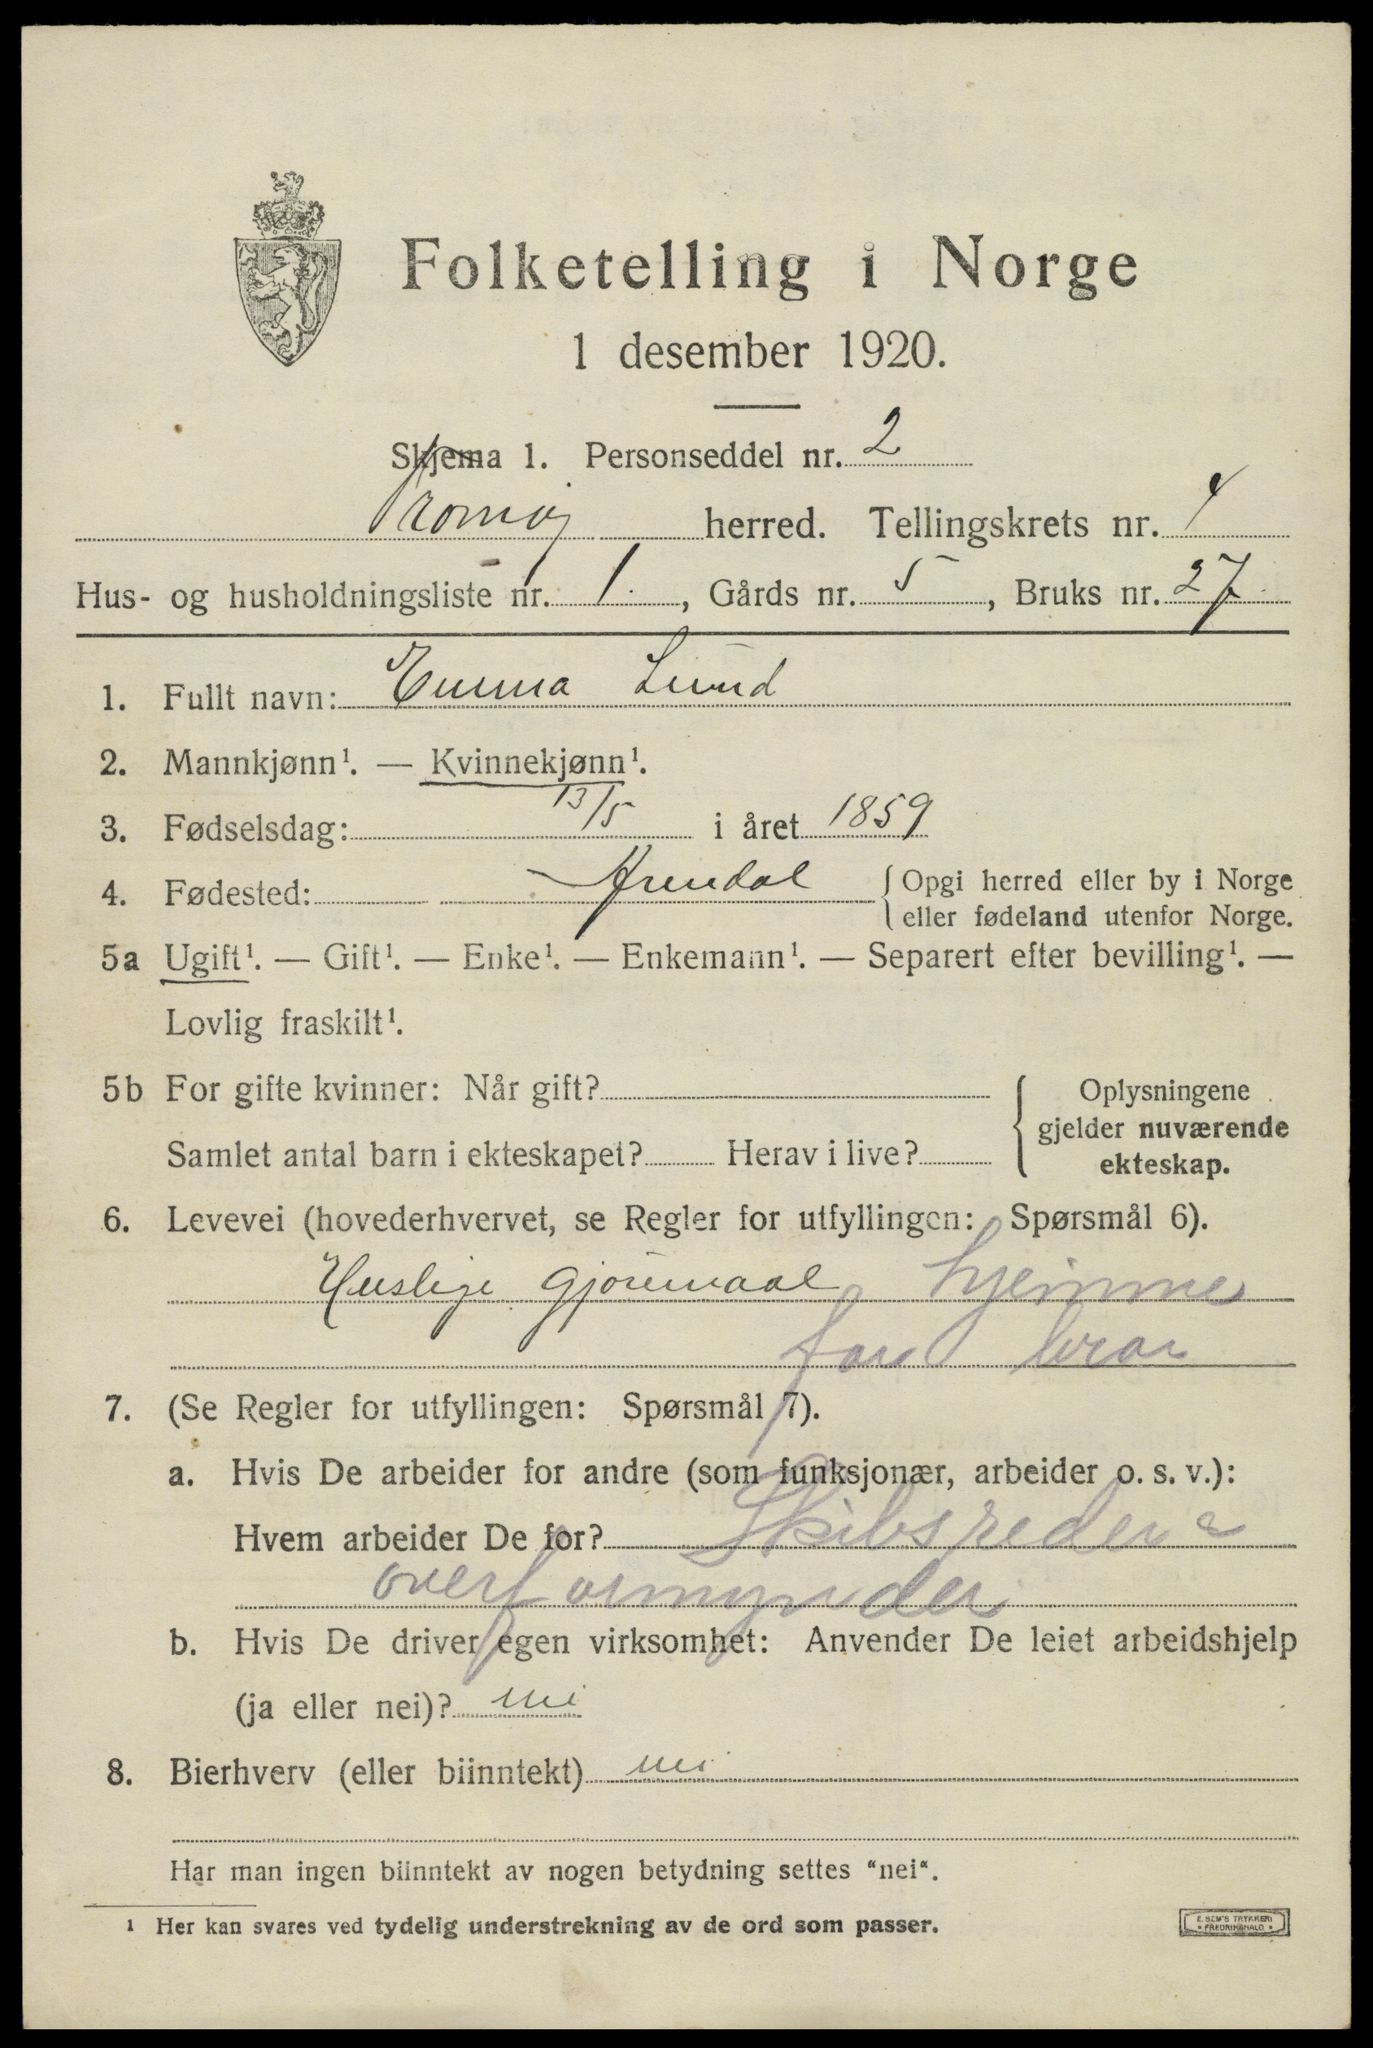 Folketelling i Norge
1 desember 1920.
Skjema 1. Personseddel nr. 2
Tromøj herred. Tellingskrets nr. 4
Hus- og husholdningsliste nr. 1. , Gårds nr. 5 , Bruks nr. 27
1. Fullt navn: Emma Lund
2. Mannkjønn¹. — Kvinnekjønn¹.
3. Fødselsdag: 13/5 i året 1859
4. Fødested: Arendal { Opgi herred eller by i Norge
eller fødeland utenfor Norge.
5a Ugift¹. — Gift¹. — Enke¹. — Enkemann¹. — Separert efter bevilling¹. —
Lovlig fraskilt¹.
5b For gifte kvinner: Når gift? { Oplysningene
gjelder nuværende
Samlet antal barn i ekteskapet? Herav i live?
ekteskap.
6. Levevei (hovederhvervet, se Regler for utfyllingen: Spørsmål 6).
Huslige gjøremaal hjemme
for bror
7. (Se Regler for utfyllingen: Spørsmål 7).
a. Hvis De arbeider for andre (som funksjonær, arbeider o. s. v.):
Hvem arbeider De for? Skibsreder
overformynder
b. Hvis De driver egen virksomhet: Anvender De leiet arbeidshjelp
(ja eller nei)? nei
8. Bierhverv (eller biinntekt) nei
Har man ingen biinntekt av nogen betydning settes "nei".
¹ Her kan svares ved tydelig understrekning av de ord som passer.
E. SEM'S TRYKKERI
FREDRIKSHALD